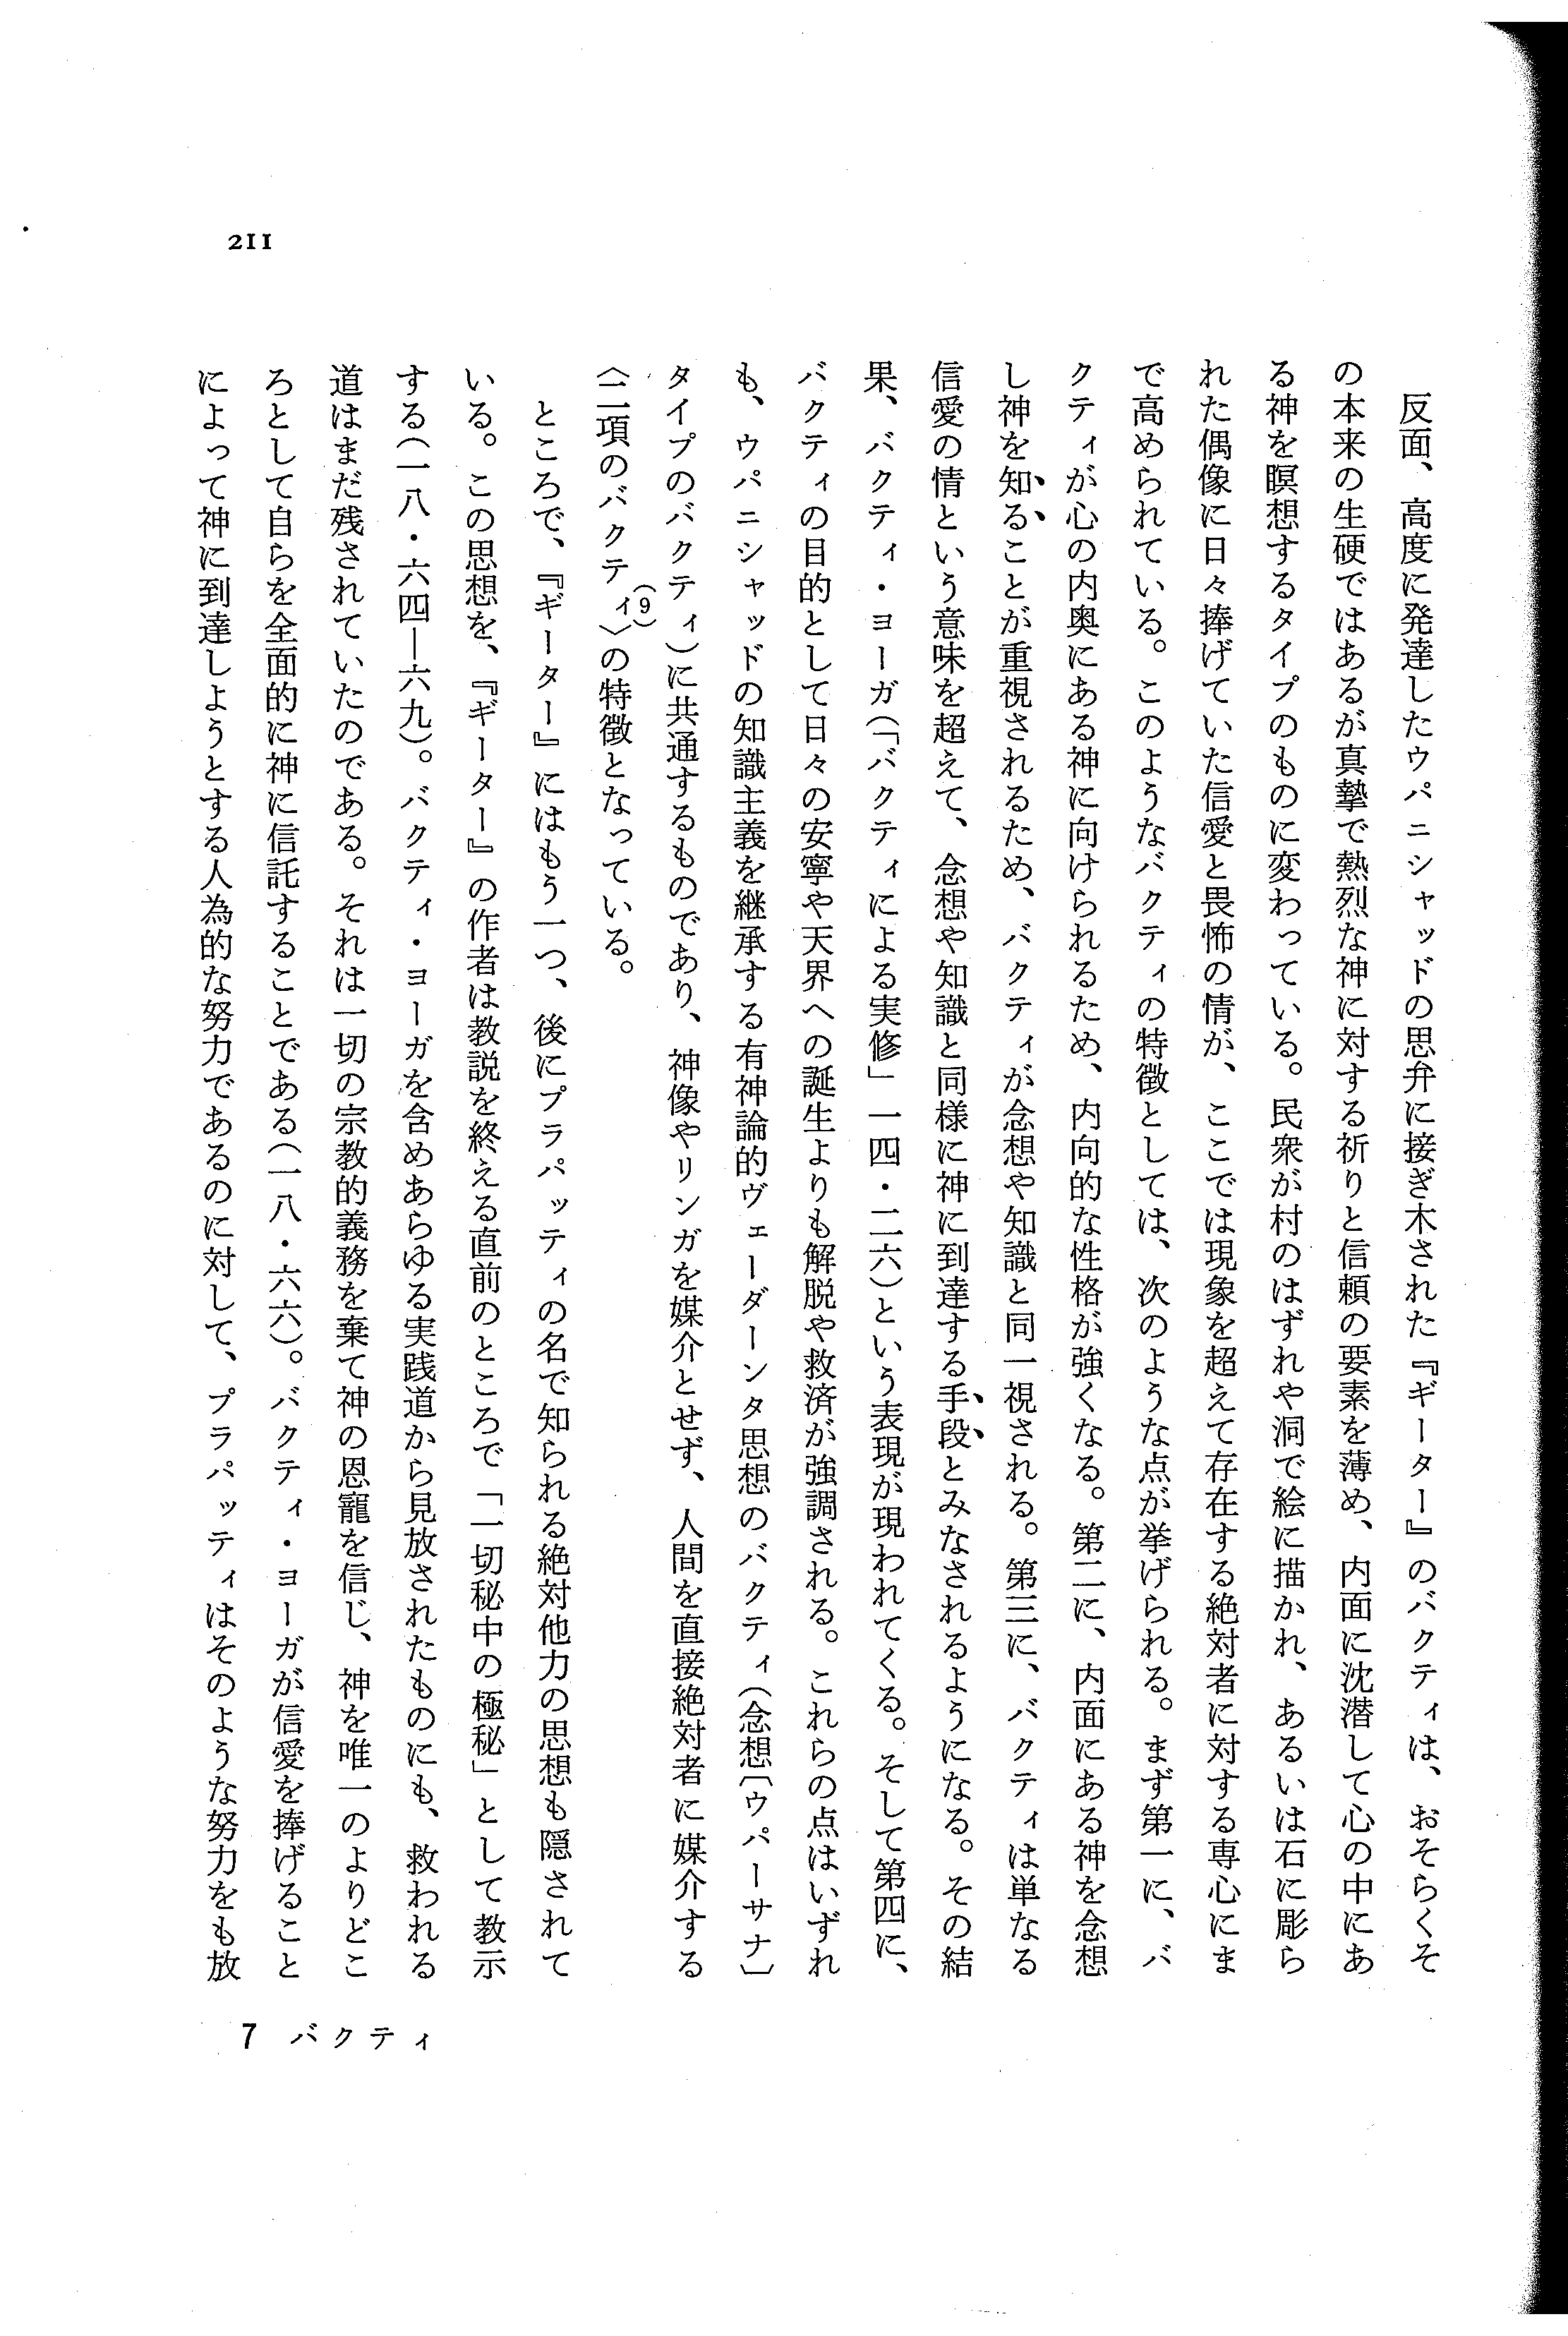 反面、高度に発達したウパニシャッドの思弁に接ぎ木された『ギーター』のバクティは、おそらくそ
の本来の生硬ではあるが真摯で熱烈な神に対する祈りと信頼の要素を薄め、内面に沈潜して心の中にあ
る神を瞑想するタイプのものに変わっている。民衆が村のはずれや洞で絵に描かれ、あるいは石に彫ら
れた偶像に日々捧げていた信愛と畏怖の情が、ここでは現象を超えて存在する絶対者に対する専心にま
で高められている。このようなバクティの特徴としては、次のような点が挙げられる。まず第一に、バ
クティが心の内奥にある神に向けられるため、内向的な性格が強くなる。第二に、内面にある神を念想
し神を知ることが重視されるため、バクティが念想や知識と同一視される。第三に、バクティは単なる
信愛の情という意味を超えて、念想や知識と同様に神に到達する手段とみなされるようになる。その結
果、バクティ・ヨーガ(「バクティによる実修」一四・二六)という表現が現われてくる。そして第四に、
バクティの目的として日々の安寧や天界への誕生よりも解脱や救済が強調される。これらの点はいずれ
も、ウパニシャッドの知識主義を継承する有神論的ヴェーダーンタ思想のバクティ(念想〔ウパーサナ〕
タイプのバクティ)に共通するものであり、神像やリンガを媒介とせず、人間を直接絶対者に媒介する
〈二項のバクティ〉(9)の特徴となっている。
ところで、『ギーター』にはもう一つ、後にプラパッティの名で知られる絶対他力の思想も隠されて
いる。この思想を、『ギーター』の作者は教説を終える直前のところで「一切秘中の極秘」として教示
する(一八・六四—六九)。バクティ・ヨーガを含めあらゆる実践道から見放されたものにも、救われる
道はまだ残されていたのである。それは一切の宗教的義務を棄て神の恩寵を信じ、神を唯一のよりどこ
ろとして自らを全面的に神に信託することである(一八・六六)。バクティ・ヨーガが信愛を捧げること
によって神に到達しようとする人為的な努力であるのに対して、プラパッティはそのような努力をも放
211
7 バクティ